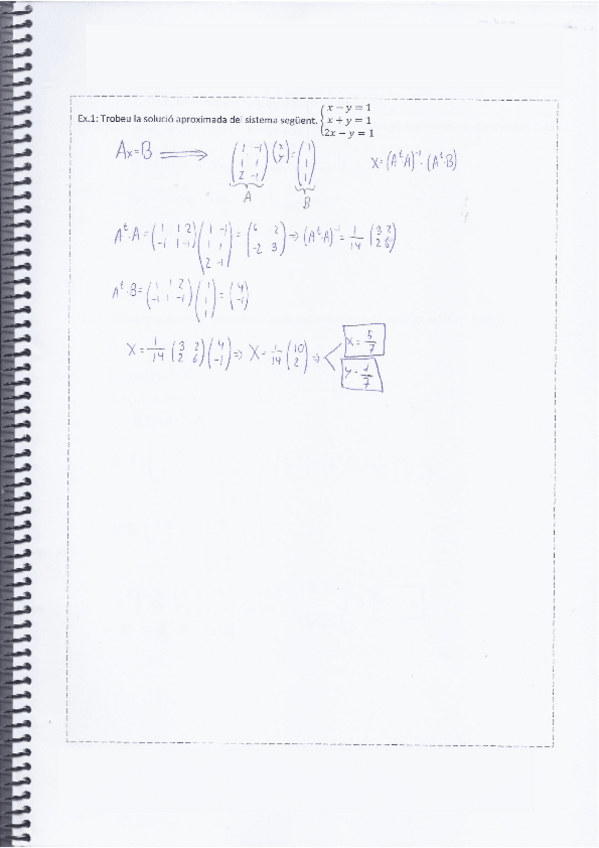 Ex.1: Trobeu la solució aproximada del sistema següent. { x − y = 1
x + y = 1
2x − y = 1
Ax=B ⟹ (1 -1; 1 1; 2 -1)(x; y)=(1; 1; 1) X=(AᵗA)⁻¹·(Aᵗ·B)
A B
Aᵗ·A=(1 1 2; -1 1 -1)(1 -1; 1 1; 2 -1)=(6 2; -2 3)⇒(Aᵗ·A)⁻¹=1/14 (3 2; 2 6)
Aᵗ·B=(1 1 2; -1 1 -1)(1; 1; 1)=(4; -1)
X=1/14 (3 2; 2 6)(4; -1)⇒ X=1/14 (10; 2)⇒ x=5/7
y=1/7